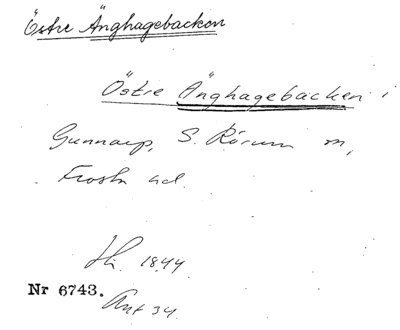 Östre Änghagebacken
Östre Änghagebacken i
Gunnarp, S. Rörum sn,
Frosta hd.
Hi. 1844
Nr 6743.
Akt 34